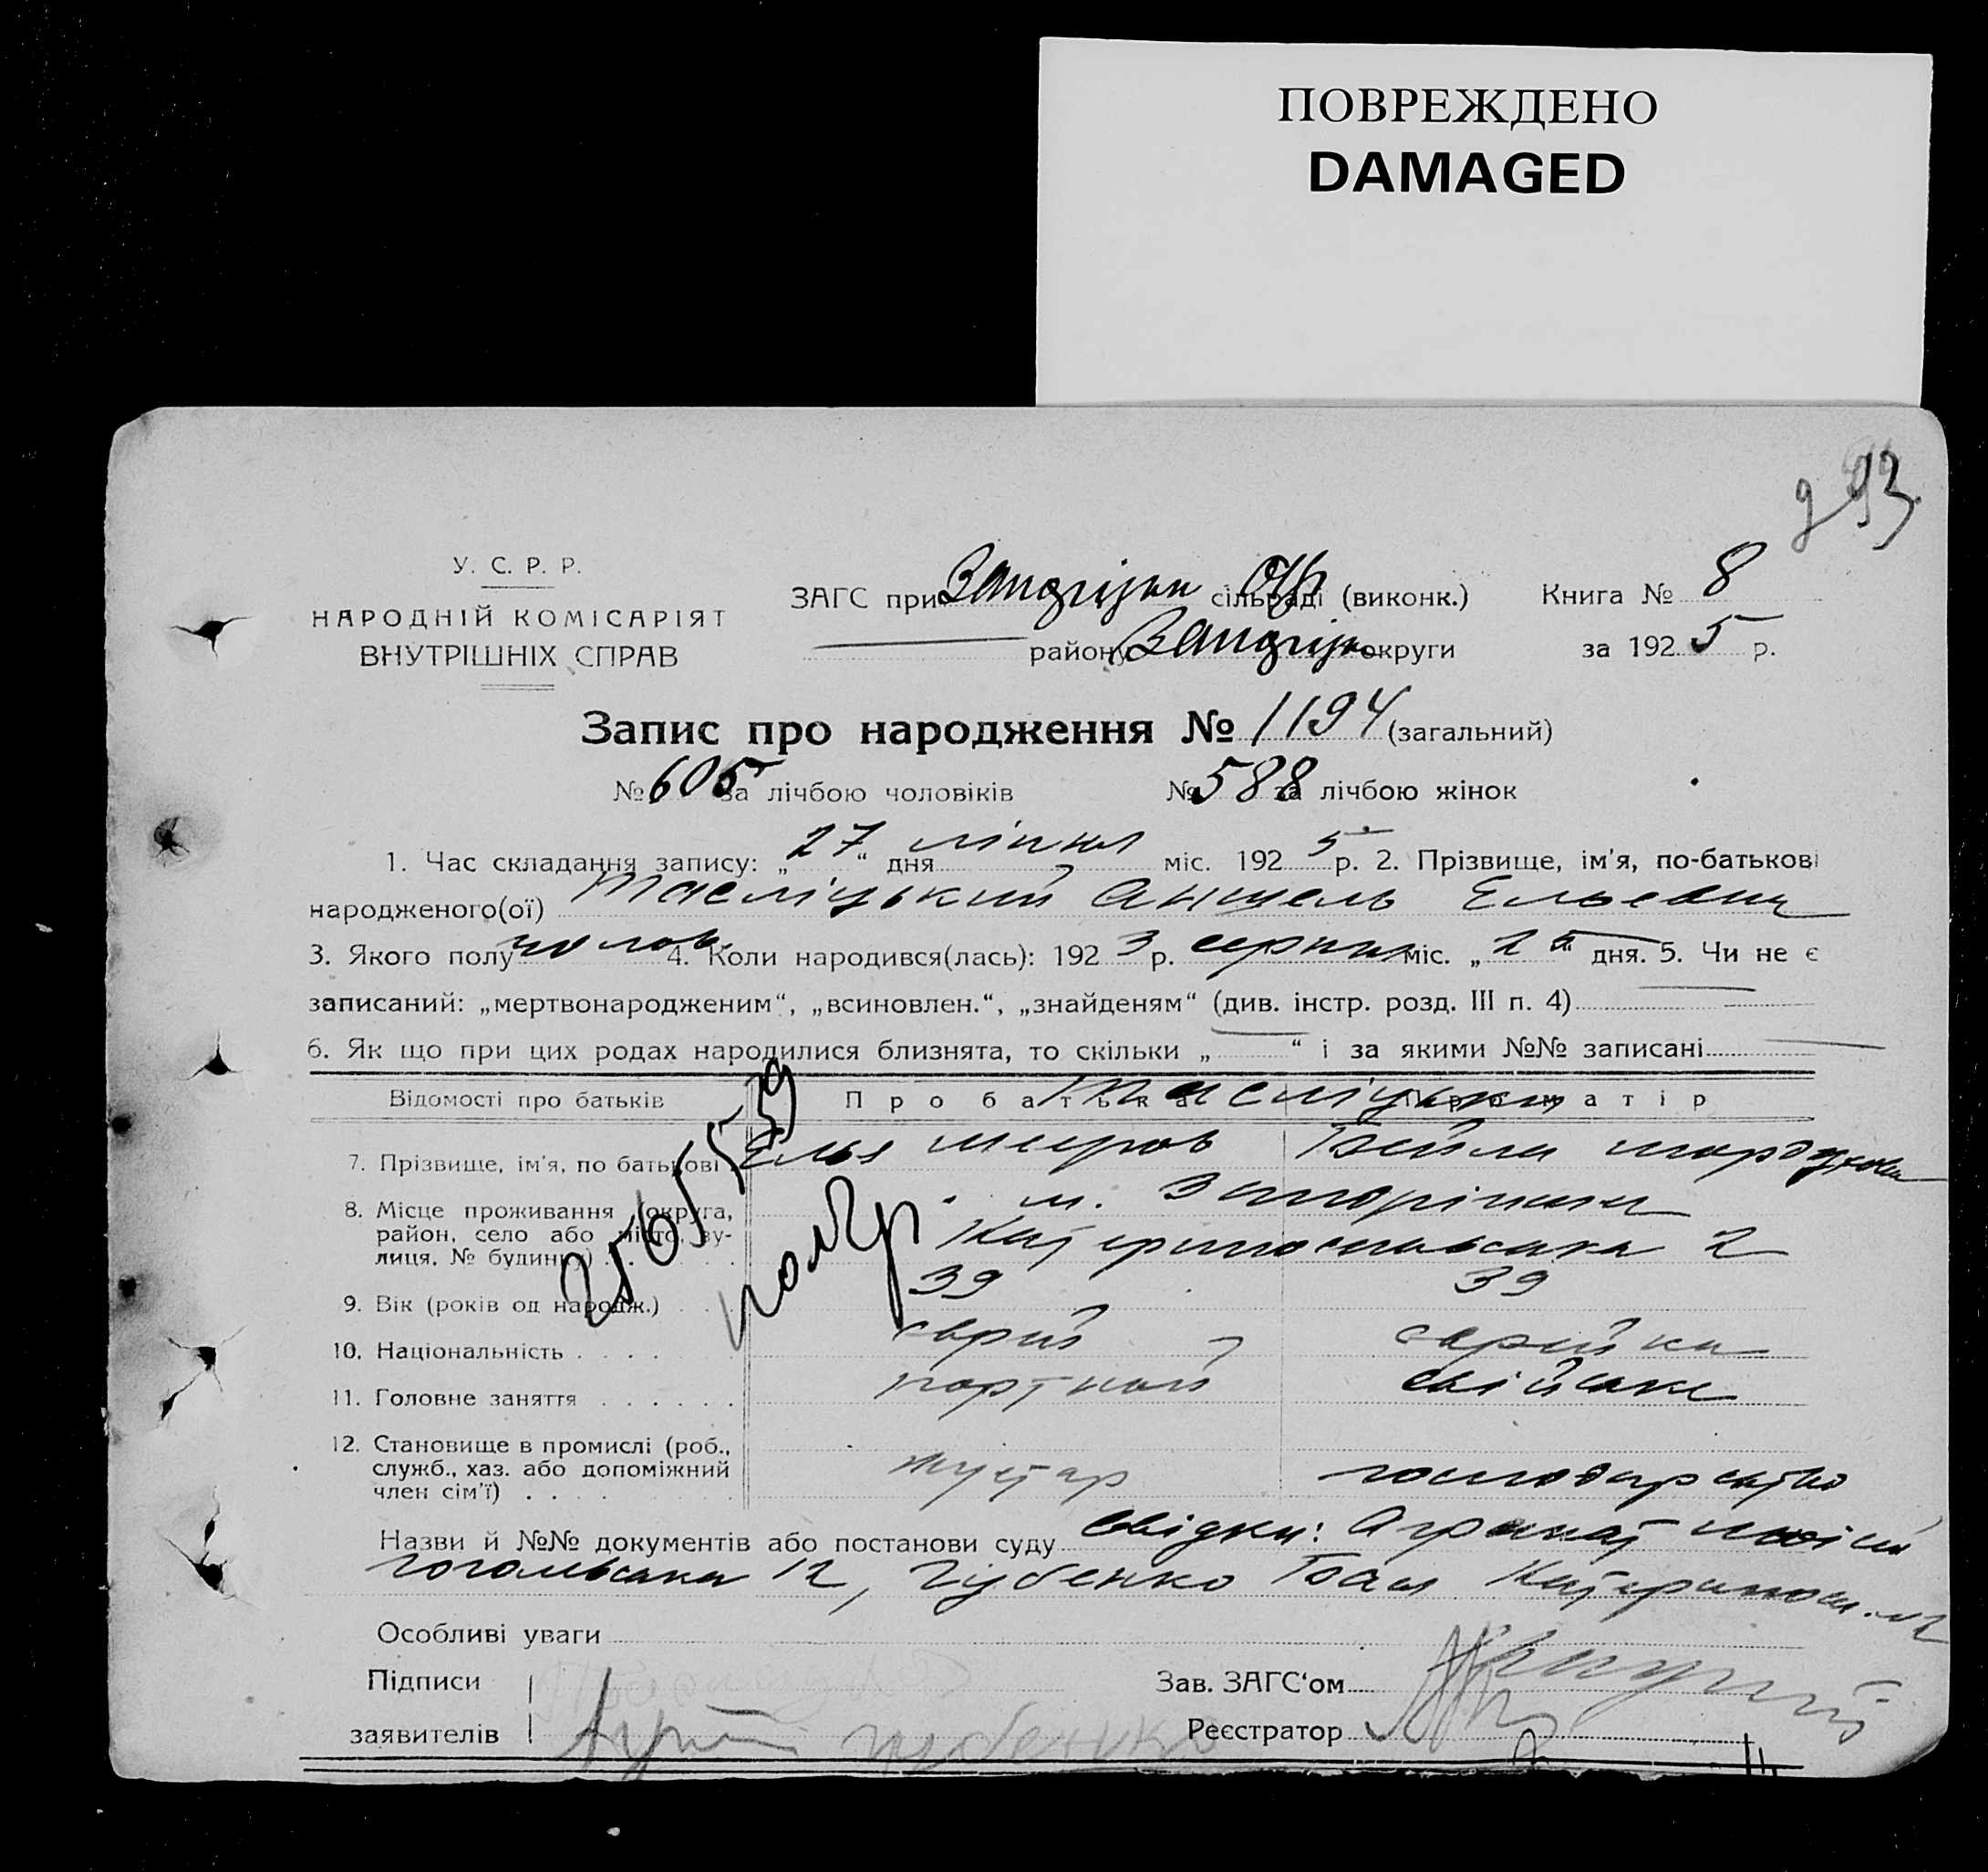 ПОВРЕЖДЕНО
DAMAGED
293
У. С. Р. Р.
НАРОДНІЙ КОМІСАРІЯТ
ВНУТРІШНІХ СПРАВ
ЗАГС при сільраді (виконк.) Книга № 8
району округи за 1925 р.
Запис про народження № 1194 (загальний)
№ 605 за лічбою чоловіків № 588 за лічбою жінок
1. Час складання запису: „27“ дня ліпня міс. 1925 р. 2. Прізвище, ім'я, по-батькові
народженого(ої) Тасліцький Аншель Ельевич
3. Якого полу чолов. 4. Коли народився(лась): 1923 р. серпня міс. „25“ дня. 5. Чи не є
записаний: „мертвонародженим“, „всиновлен.“, „знайденям“ (див. інстр. розд. III п. 4)
6. Як що при цих родах народилися близнята, то скільки „ “ і за якими №№ записані
Відомості про батьків Про батька Про матір
Тасліцьки
7. Прізвище, ім'я, по батькові Елья Мееров Бейла Мордухова
8. Місце проживання (округа, район, село або місто, вулиця, № будинку) м. Запоріжжя
Катеринославська 2
9. Вік (років од народж.) 39 39
10. Національність еврей еврейка
11. Головне заняття портной свійське
12. Становище в промислі (роб., служб., хаз. або допоміжний член сім'ї) кустар господарство
Назви й №№ документів або постанови суду Свідки: Агранат
Гогольська 12, Губенко Катериносл.
Особливі уваги
Підписи
заявителів Губенко
Зав. ЗАГС'ом
Реєстратор